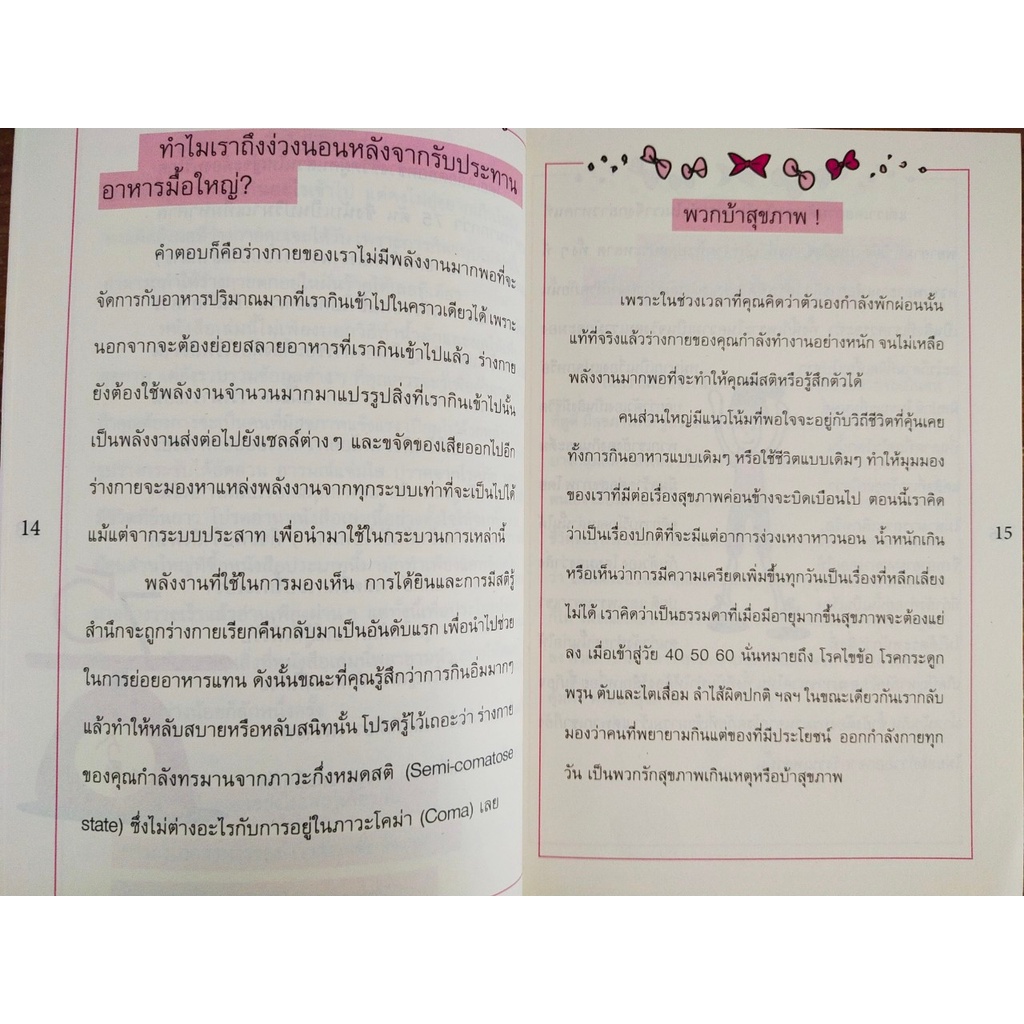 ทำไมเราถึงง่วงนอนหลังจากรับประทาน
อาหารมื้อใหญ่?
คำตอบก็คือร่างกายของเราไม่มีพลังงานมากพอที่จะ
จัดการกับอาหารปริมาณมากที่เรากินเข้าไปในคราวเดียวได้ เพราะ
นอกจากจะต้องย่อยสลายอาหารที่เรากินเข้าไปแล้ว ร่างกาย
ยังต้องใช้พลังงานจำนวนมากมาแปรรูปสิ่งที่เรากินเข้าไปนั้น
เป็นพลังงานส่งต่อไปยังเซลล์ต่างๆ และขจัดของเสียออกไปอีก
ร่างกายจะมองหาแหล่งพลังงานจากทุกระบบเท่าที่จะเป็นไปได้
แม้แต่จากระบบประสาท เพื่อนำมาใช้ในกระบวนการเหล่านี้
พลังงานที่ใช้ในการมองเห็น การได้ยินและการมีสติรู้
สำนึกจะถูกร่างกายเรียกคืนกลับมาเป็นอันดับแรก เพื่อนำไปช่วย
ในการย่อยอาหารแทน ดังนั้นขณะที่คุณรู้สึกว่าการกินอิ่มมากๆ
แล้วทำให้หลับสบายหรือหลับสนิทนั้น โปรดรู้ไว้เถอะว่า ร่างกาย
ของคุณกำลังทรมานจากภาวะกึ่งหมดสติ (Semi-comatose
state) ซึ่งไม่ต่างอะไรกับการอยู่ในภาวะโคม่า (Coma) เลย
14
พวกบ้าสุขภาพ !
เพราะในช่วงเวลาที่คุณคิดว่าตัวเองกำลังพักผ่อนนั้น
แท้ที่จริงแล้วร่างกายของคุณกำลังทำงานอย่างหนัก จนไม่เหลือ
พลังงานมากพอที่จะทำให้คุณมีสติหรือรู้สึกตัวได้
คนส่วนใหญ่มีแนวโน้มที่พอใจจะอยู่กับวิถีชีวิตที่คุ้นเคย
ทั้งการกินอาหารแบบเดิมๆ หรือใช้ชีวิตแบบเดิมๆ ทำให้มุมมอง
ของเราที่มีต่อเรื่องสุขภาพค่อนข้างจะบิดเบือนไป ตอนนี้เราคิด
ว่าเป็นเรื่องปกติที่จะมีแต่อาการง่วงเหงาหาวนอน น้ำหนักเกิน
หรือเห็นว่าการมีความเครียดเพิ่มขึ้นทุกวันเป็นเรื่องที่หลีกเลี่ยง
ไม่ได้ เราคิดว่าเป็นธรรมดาที่เมื่อมีอายุมากขึ้นสุขภาพจะต้องแย่
ลง เมื่อเข้าสู่วัย 40 50 60 นั่นหมายถึง โรคไขข้อ โรคกระดูก
พรุน ตับและไตเสื่อม ลำไส้ผิดปกติ ฯลฯ ในขณะเดียวกันเรากลับ
มองว่าคนที่พยายามกินแต่ของที่มีประโยชน์ ออกกำลังกายทุก
วัน เป็นพวกรักสุขภาพเกินเหตุหรือบ้าสุขภาพ
15